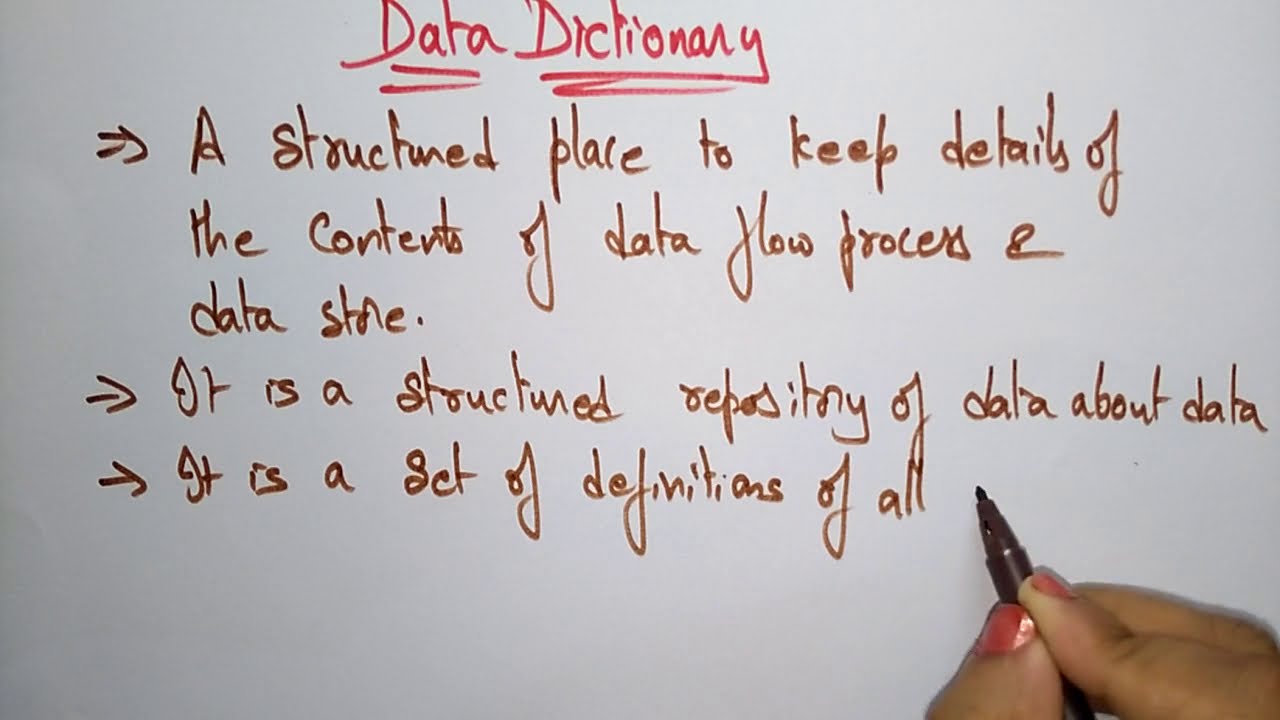 Data Dictionary
⇒ A structured place to keep details of
the contents of data flow process &
data store.
⇒ It is a structured repository of data about data
→ It is a set of definitions of all